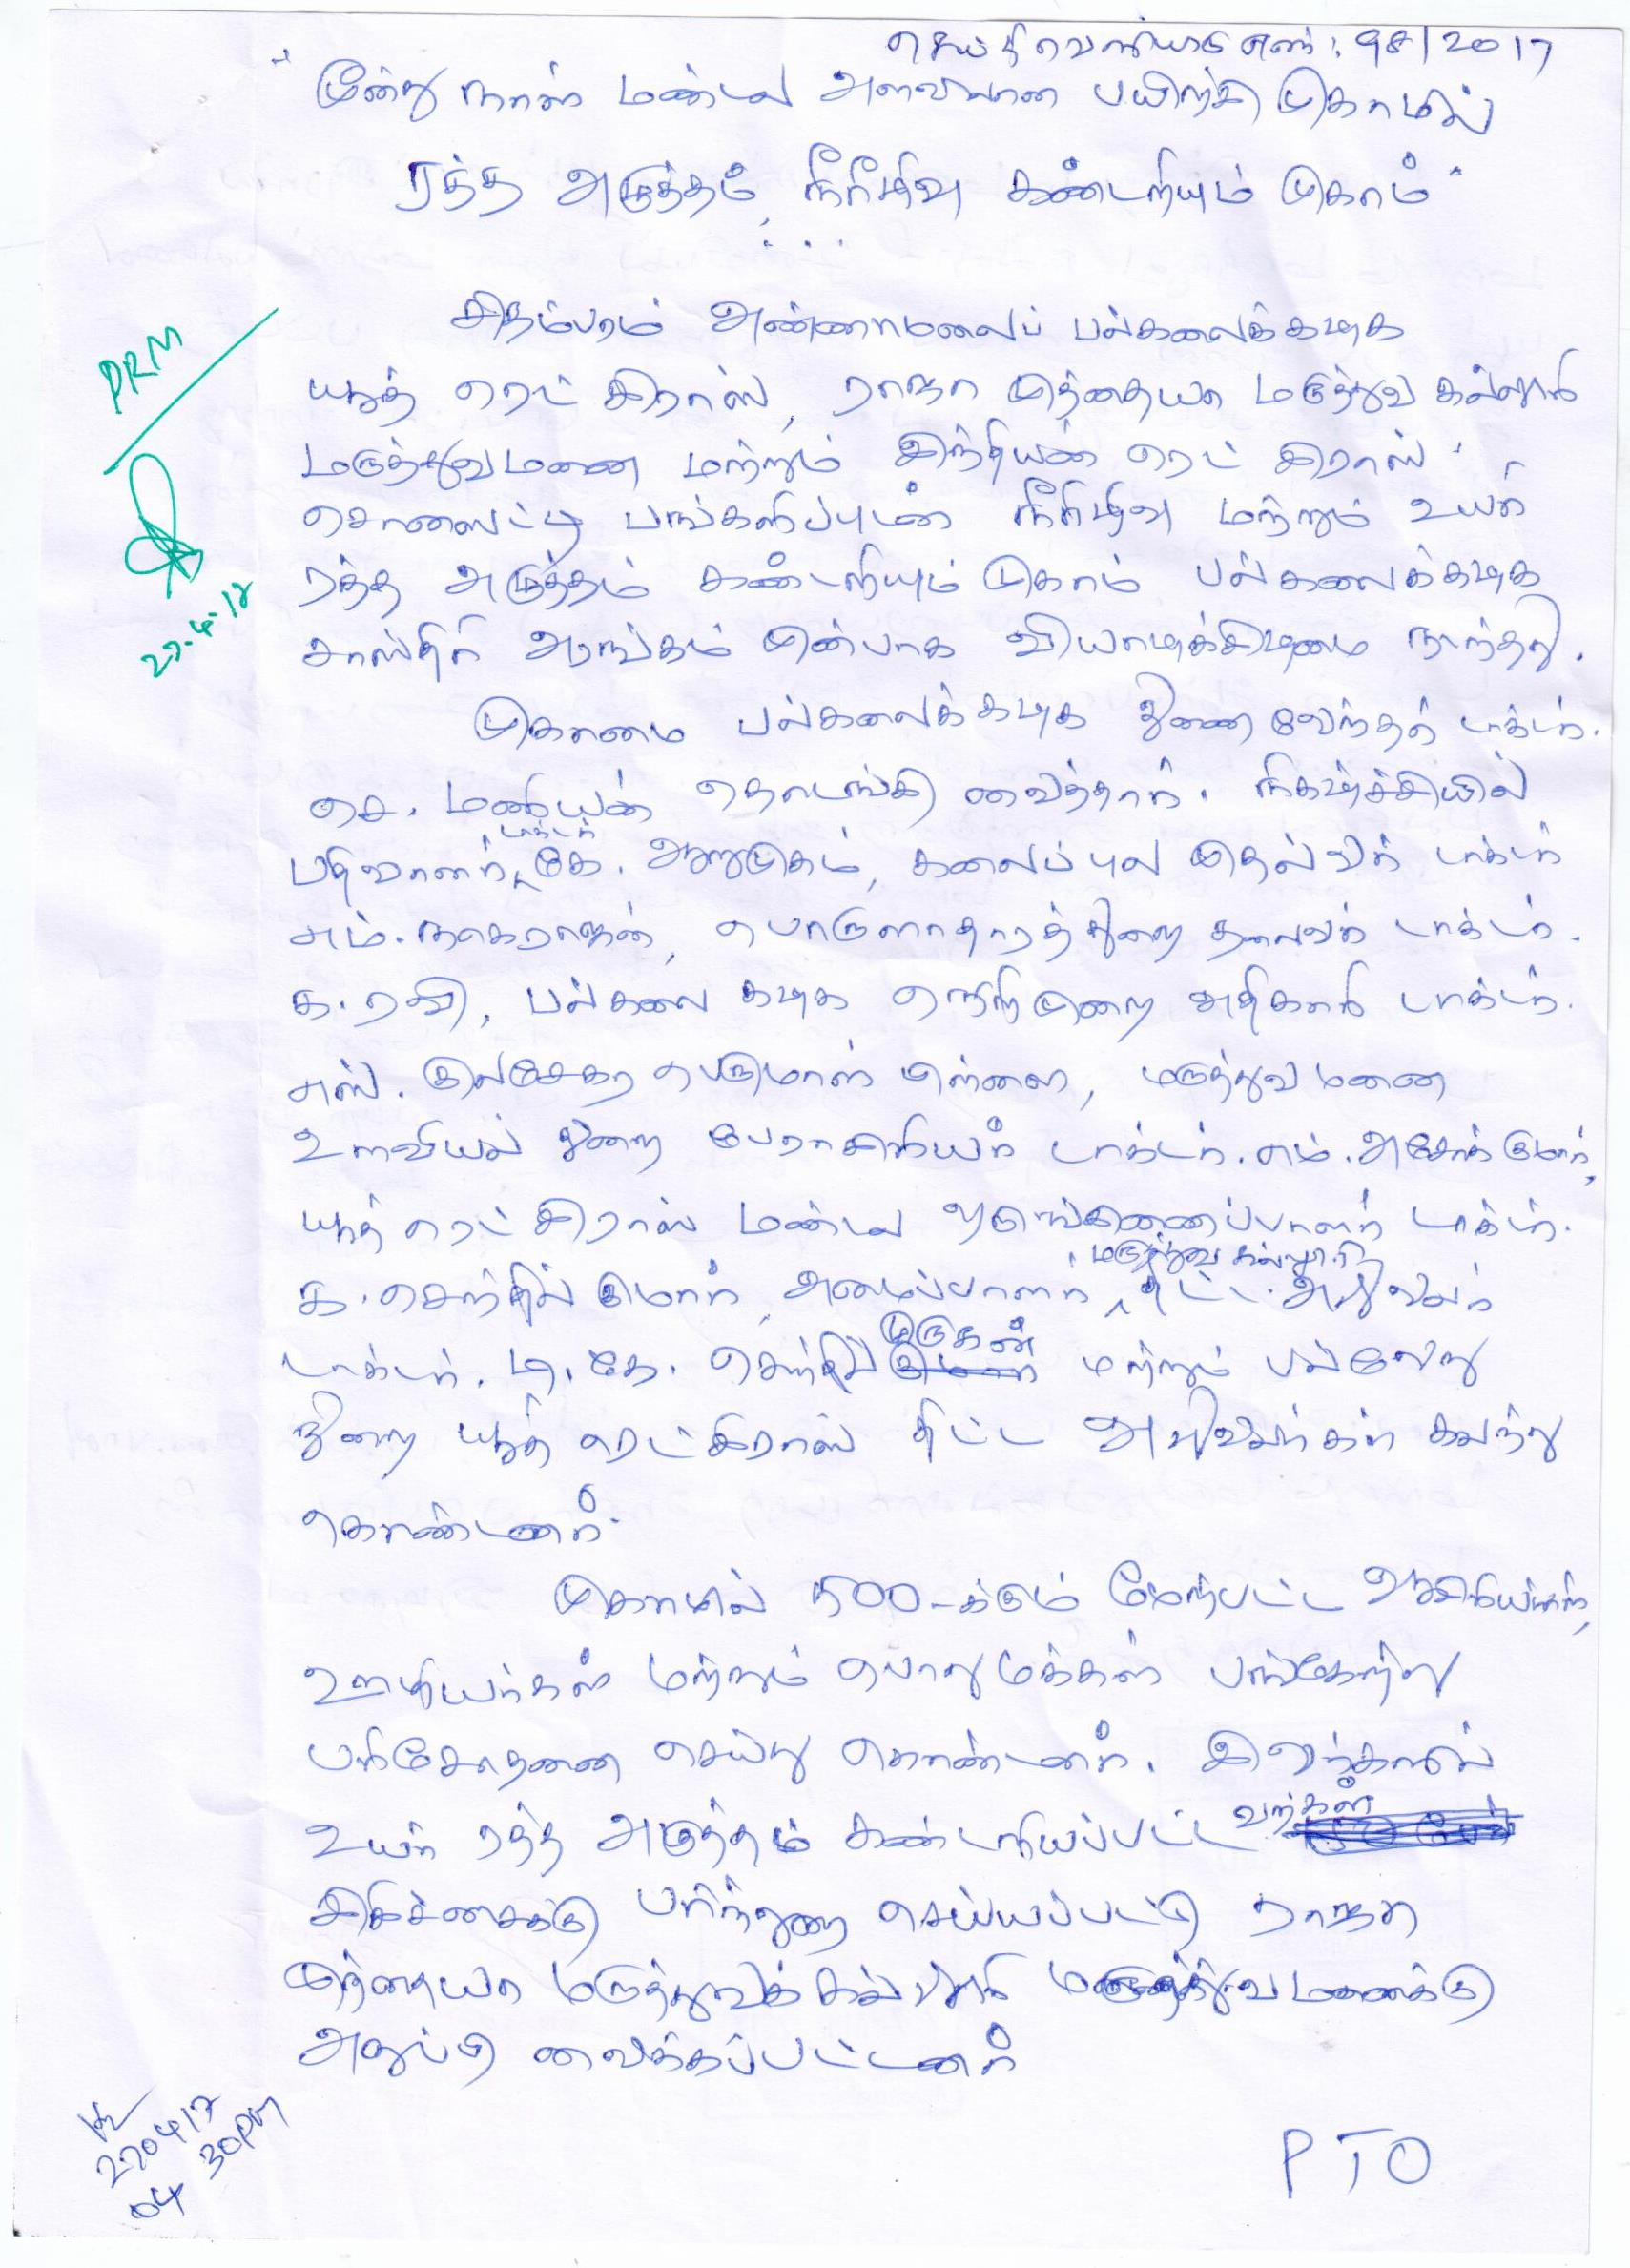 செய்தி வெளியீடு எண்: 98/2017
"மூன்று நாள் மண்டல அளவிலான பயிற்சி முகாமில்
ரத்த அழுத்தம், நீரிழிவு கண்டறியும் முகாம்"
சிதம்பரம் அண்ணாமலைப் பல்கலைக்கழக
யூத் ரெட் கிராஸ், ராஜா முத்தையா மருத்துவ கல்லூரி
மருத்துவமனை மற்றும் இந்தியன் ரெட் கிராஸ்
சொஸைட்டி பங்களிப்புடன் நீரிழிவு மற்றும் உயர்
ரத்த அழுத்தம் கண்டறியும் முகாம் பல்கலைக்கழக
சாஸ்திரி அரங்கம் முன்பாக வியாழக்கிழமை நடந்தது.
முகாமை பல்கலைக்கழக துணைவேந்தர் டாக்டர்.
செ. மணியன் தொடங்கி வைத்தார். நிகழ்ச்சியில்
பதிவாளர், டாக்டர் கே. ஆறுமுகம், கலைப்புல முதல்வர் டாக்டர்
எம். நாகராஜன், பொருளாதாரத்துறை தலைவர் டாக்டர்.
க. ரவி, பல்கலை கழக தொடர்பு அதிகாரி டாக்டர்.
எஸ். குலசேகர பெருமாள் பிள்ளை, மருத்துவமனை
உளவியல் துறை பேராசிரியர் டாக்டர். எம். அசோக்குமார்,
யூத் ரெட் கிராஸ் மண்டல ஒருங்கிணைப்பாளர் டாக்டர்.
க. செந்தில்குமார், அமைப்பாளர், மருத்துவ கல்லூரி திட்ட அலுவலர்
டாக்டர். டி. கே. செந்தில் முருகன் மற்றும் பல்வேறு
துறை யூத் ரெட்கிராஸ் திட்ட அலுவலர்கள் கலந்து
கொண்டனர்.
முகாமில் 500-க்கும் மேற்பட்ட ஆசிரியர்கள்,
ஊழியர்கள் மற்றும் பொதுமக்கள் பங்கேற்று
பரிசோதனை செய்து கொண்டனர். இவர்களில்
உயர் ரத்த அழுத்தம் கண்டறியப்பட்டவர்கள்
சிகிச்சைக்கு பரிந்துரை செய்யப்பட்டு ராஜா
முத்தையா மருத்துவக் கல்லூரி மருத்துவமனைக்கு
அனுப்பி வைக்கப்பட்டனர்
PRM
27-4-17
270417
04 30PM
PTO